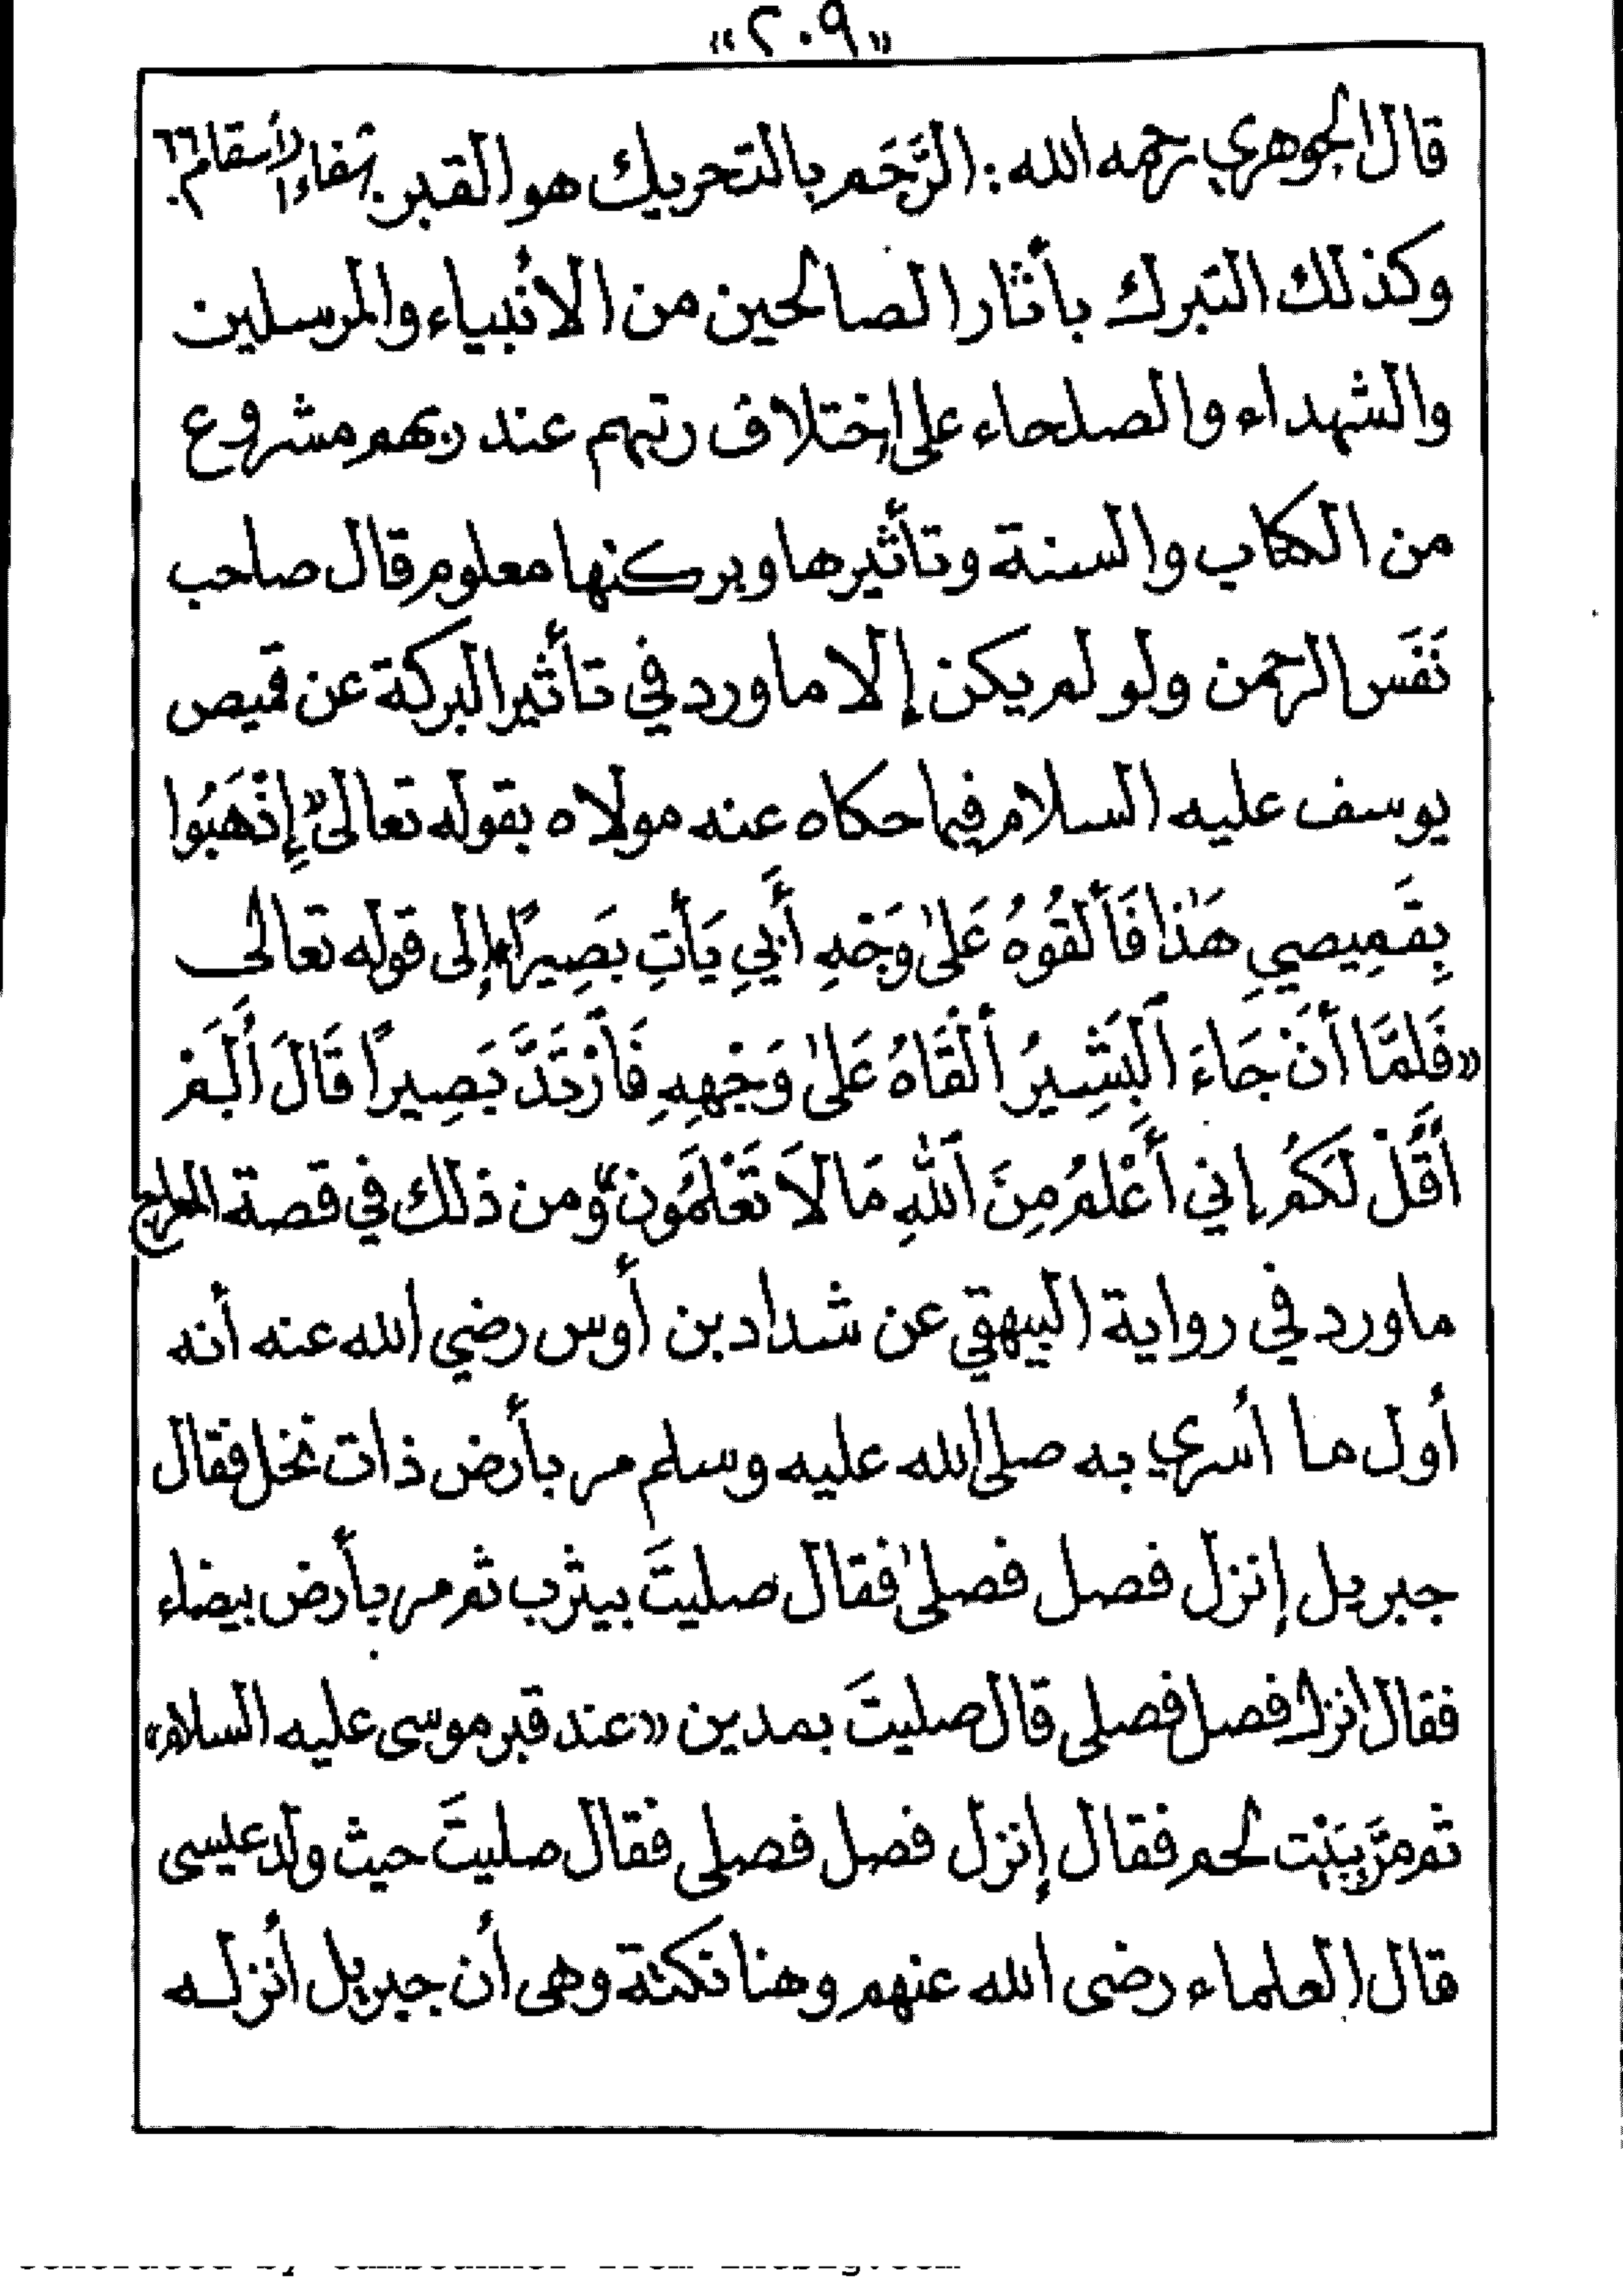 «٢٠٩»
قال الجوهري رحمه الله: الرَّجَم بالتحريك هو القبر. شفاء الأسقام ٦٦
وكذلك التبرك بأثار الصالحين من الانبياء والمرسلين
والشهداء والصلحاء على إختلاف رتبهم عند ربهم مشروع
من الكتاب والسنة وتأثيرها وبركتها معلوم قال صاحب
نَفَس الرحمن ولو لم يكن إلا ما ورد في تأثير البركة عن قميص
يوسف عليه السلام فيما حكاه عنه مولاه بقوله تعالى «إِذْهَبُوا
بِقَمِيصِي هَذَا فَأَلْقُوهُ عَلَىٰ وَجْهِ أَبِي يَأْتِ بَصِيرًا» إلى قوله تعالى
«فَلَمَّا أَنْ جَاءَ ٱلْبَشِيرُ أَلْقَاهُ عَلَىٰ وَجْهِهِ فَٱرْتَدَّ بَصِيرًا قَالَ أَلَمْ
أَقُلْ لَكُمْ إني أَعْلَمُ مِنَ ٱللهِ مَا لاَ تَعْلَمُون» ومن ذلك في قصة المعراج
ما ورد في رواية البيهقي عن شداد بن أوس رضي الله عنه أنه
أول ما أسري به صلى الله عليه وسلم مر بأرض ذات نخل فقال
جبريل إنزل فصل فصلىٰ فقال صليتَ بيثرب ثم مر بأرض بيضاء
فقال انزل فصل فصلى قال صليتَ بمدين «عند قبر موسى عليه السلام»
ثم مرَّ بِبَيْت لحم فقال إنزل فصل فصلى فقال صليتَ حيث ولد عيسى
قال العلماء رضى الله عنهم وهنا نكتة وهى أن جبريل أنزلــه